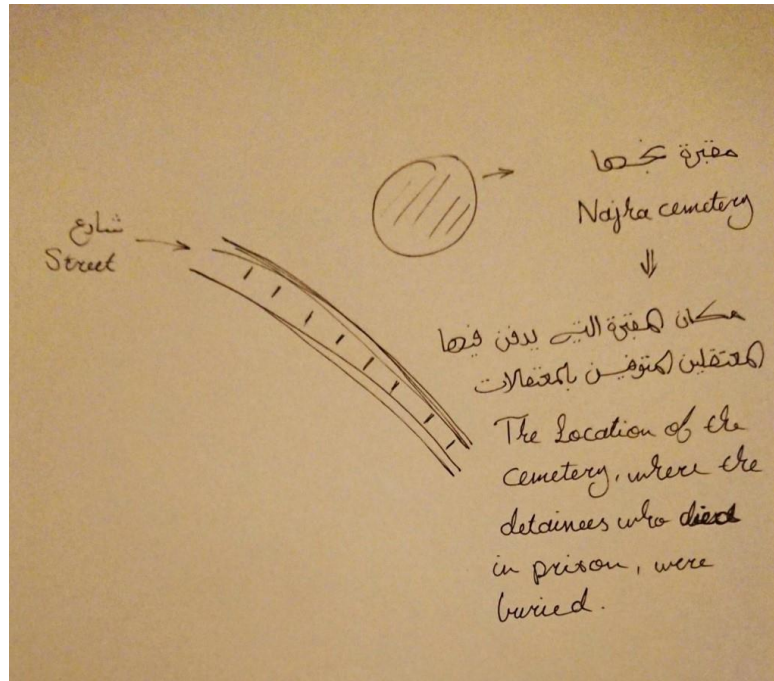 شارع
Street
مقبرة نجها
Najha cemetery
⇓
مكان المقبرة التي يدفن فيها
المعتقلين المتوفين بالمعتقلات
The Location of the
cemetery, where the
detainees who died
in prison, were
buried.